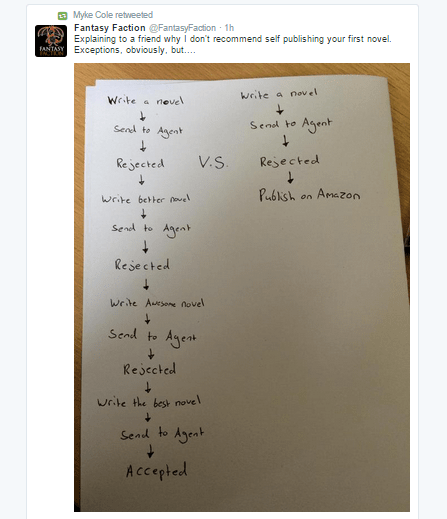 Myke Cole retweeted
Fantasy Faction @FantasyFaction · 1h
Explaining to a friend why I don't recommend self publishing your first novel.
Exceptions, obviously, but....
FANTASY
FACTION
Write a novel
↓
Send to Agent
↓
Rejected
↓
Write better novel
↓
Send to Agent
↓
Rejected
↓
Write Awesome novel
↓
Send to Agent
↓
Rejected
↓
Write the best novel
↓
Send to Agent
↓
Accepted
V.S.
Write a novel
↓
Send to Agent
↓
Rejected
↓
Publish on Amazon